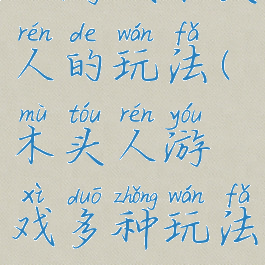 rén de wán fǎ
人的玩法(
mù tóu rén yóu
木头人游
xì duō zhǒng wán fǎ
戏多种玩法